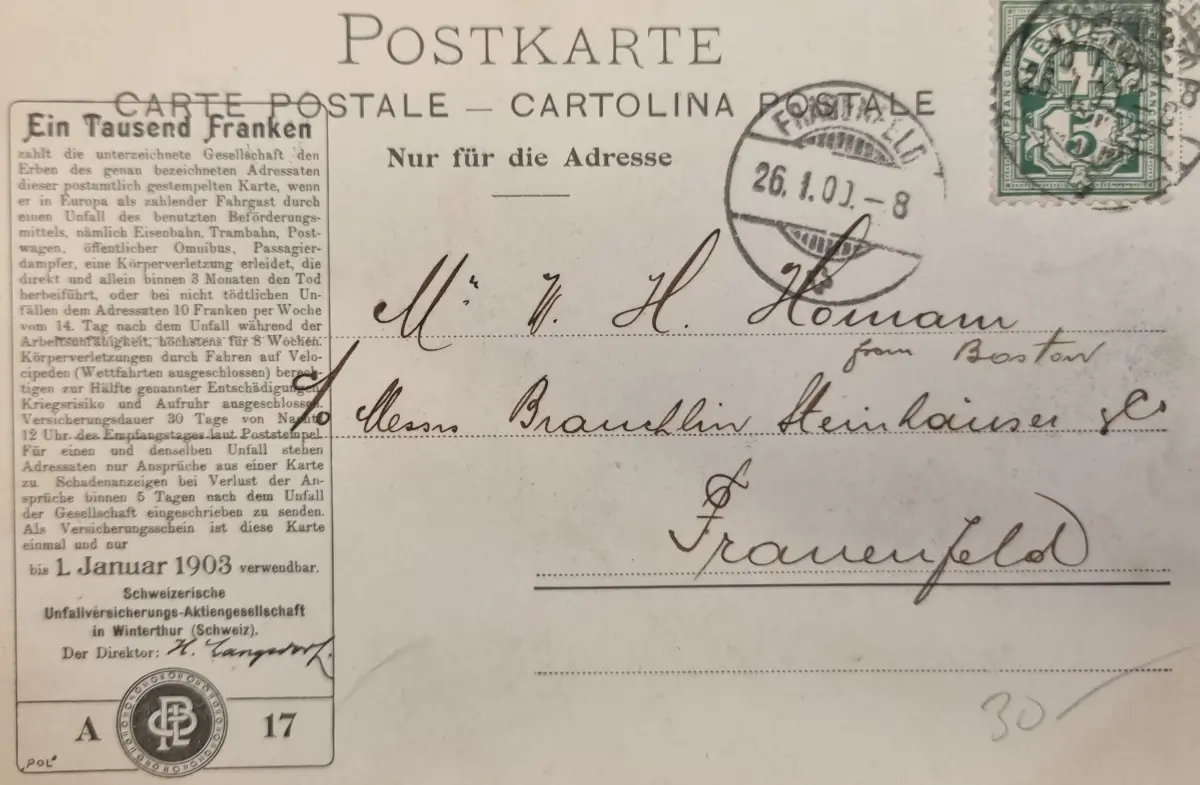 POSTKARTE
CARTE POSTALE – CARTOLINA POSTALE
Nur für die Adresse
Ein Tausend Franken
zahlt die unterzeichnete Gesellschaft den
Erben des genau bezeichneten Adressaten
dieser postamtlich gestempelten Karte, wenn
er in Europa als zahlender Fahrgast durch
einen Unfall des benutzten Beförderungs-
mittels, nämlich Eisenbahn, Trambahn, Post-
wagen, öffentlicher Omnibus, Passagier-
dampfer, eine Körperverletzung erleidet, die
direkt und allein binnen 3 Monaten den Tod
herbeiführt, oder bei nicht tödtlichen Un-
fällen dem Adressaten 10 Franken per Woche
vom 14. Tag nach dem Unfall während der
Arbeitsunfähigkeit, höchstens für 8 Wochen.
Körperverletzungen durch Fahren auf Velo-
cipeden (Wettfahrten ausgeschlossen) berech-
tigen zur Hälfte genannter Entschädigungen.
Kriegsrisiko und Aufruhr ausgeschlossen.
Versicherungsdauer 30 Tage von Nachts
12 Uhr des Empfangstages laut Poststempel.
Für einen und denselben Unfall stehen
Adressaten nur Ansprüche aus einer Karte
zu. Schadenanzeigen bei Verlust der An-
sprüche binnen 5 Tagen nach dem Unfall
der Gesellschaft eingeschrieben zu senden.
Als Versicherungsschein ist diese Karte
einmal und nur
bis 1. Januar 1903 verwendbar.
Schweizerische
Unfallversicherungs-Aktiengesellschaft
in Winterthur (Schweiz).
Der Direktor: H. Langsdorf.
A 17
"POL"
FRAUENFELD
26.1.0 – 8
FRANCO
5
Mr W. H. Homann
from Boston
c/o Messrs Brauchlin Steinhäuser & Co
Frauenfeld
30